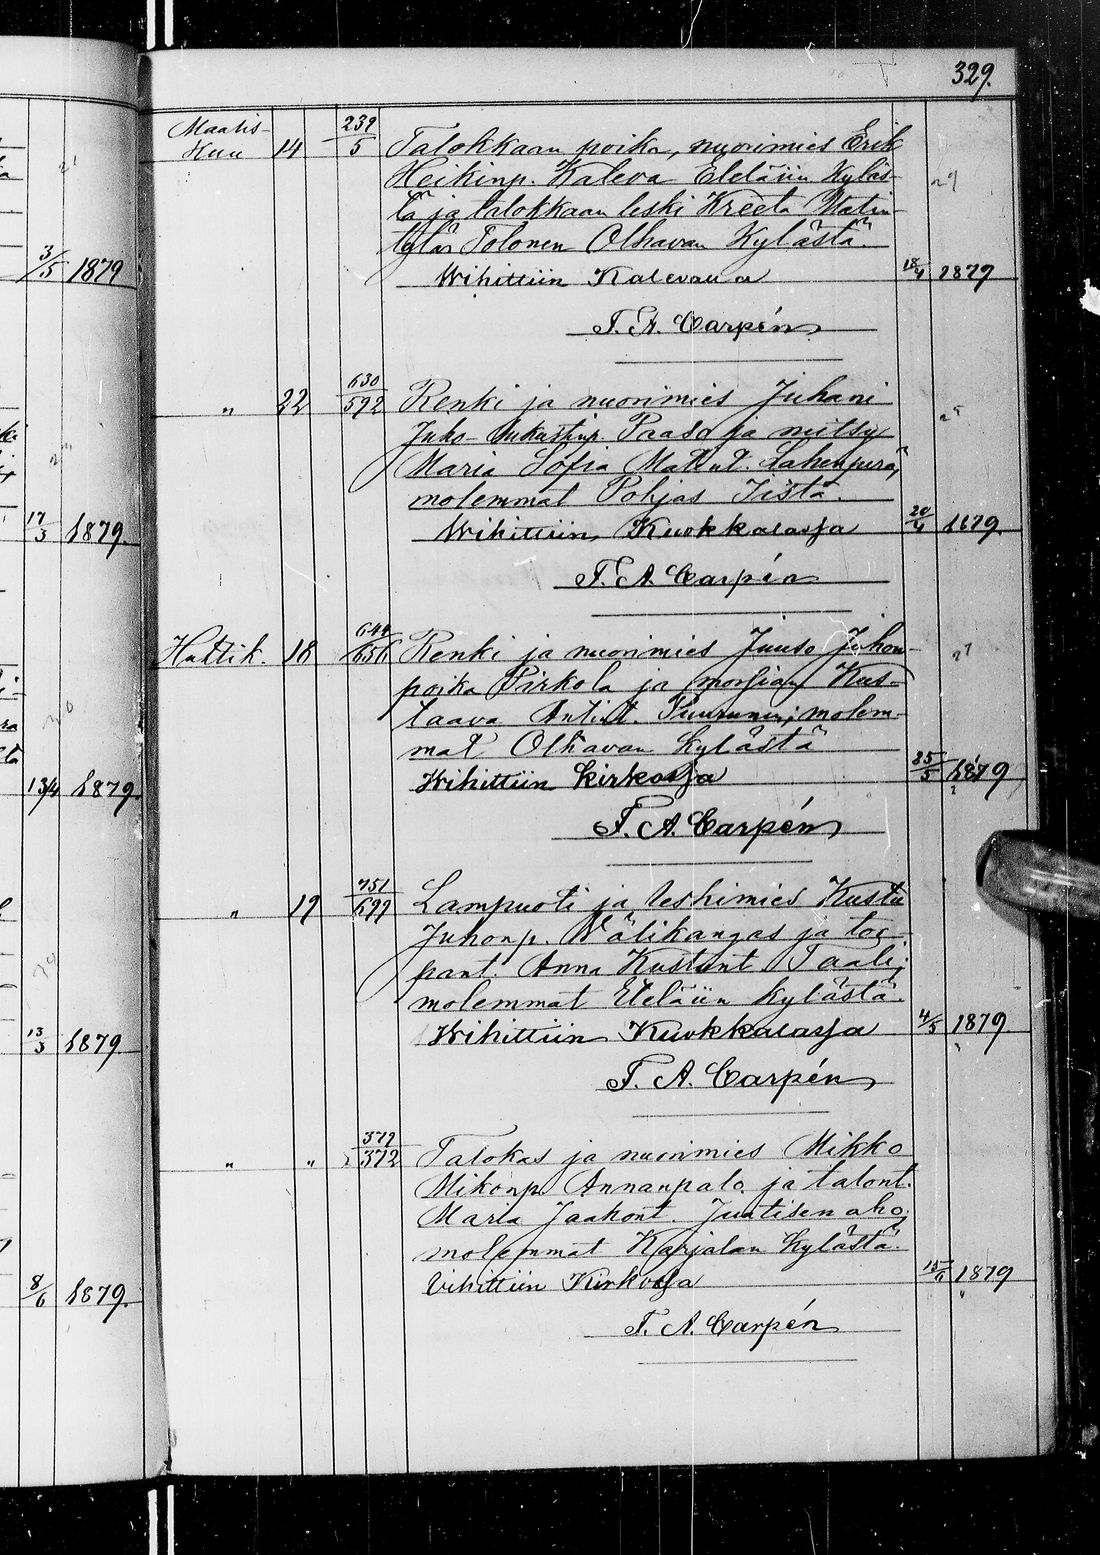 329.
Maalis-
kuu 14 239/5 Talokkaan poika, nuorimies Erik
Heikinp. Kaleva Eteläiin kyläs-
tä ja talokkaan leski Kreeta Matin-
tytär Tolonen Olhavan kylästä.
Wihittiin Kalevassa 18/4 1879
F. A. Carpén
" 22 630/592 Renki ja nuorimies Juhani
Juho- Paaso ja neitsy
Maria Sofia Matint. Lahenperä,
molemmat Pohjas Iistä.
Wihittiin Kuokkalassa 20/4 1879.
F. A. Carpén
Huhtik. 18 644/656 Renki ja nuorimies Juuso Juhon-
poika Pirkola ja morsian Kus-
taava Antint. Puurunen; molem-
mat Olhavan kylästä
Wihittiin kirkossa 25/5 1879
F. A. Carpén
" 19 751/699 Lampuoti ja leskimies Kustu
Juhonp. Wälikangas ja torp-
pant. Anna Kustunt Paali;
molemmat Eteläiin kylästä.
Wihittiin Kuokkalassa 4/5 1879
F. A. Carpén
" " 379/372 Talokas ja nuorimies Mikko
Mikonp. Annanpalo ja talont.
Maria Jaakont. Juutisenaho;
molemmat Karjalan kylästä.
Vihittiin Kirkossa 15/6 1879
F. A. Carpén
3/5 1879
17/3 1879.
13/4 1879.
13/3 1879
8/6 1879.